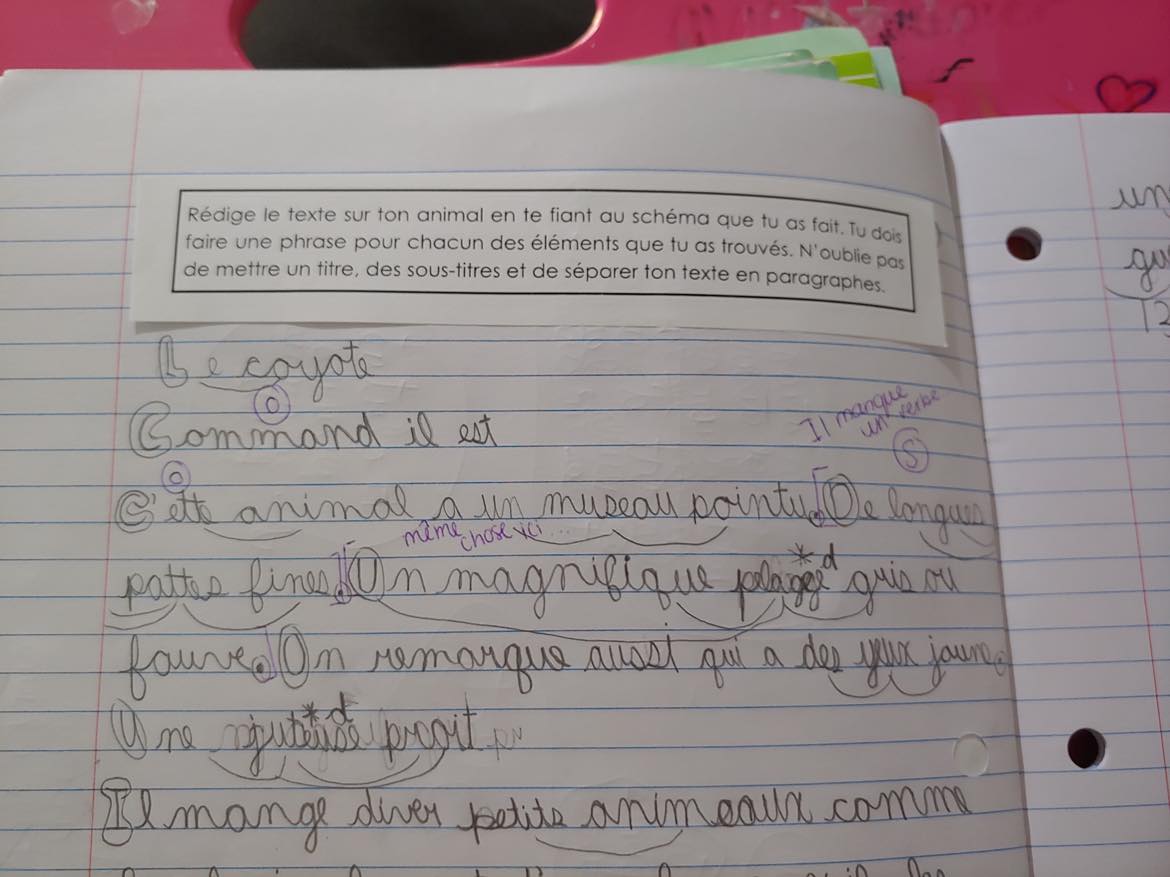 Rédige le texte sur ton animal en te fiant au schéma que tu as fait. Tu dois
faire une phrase pour chacun des éléments que tu as trouvés. N'oublie pas
de mettre un titre, des sous-titres et de séparer ton texte en paragraphes.
Le coyote
O
Command il est
Il manque
un verbe
S
O
C'ette animal a un museau pointu. De longues
même chose ici...
pattes fines. Un magnifique * d gris ou
fauve. On remarque aussi qui a des yeux jaune.
Une * d
Il mange diver petits animeaux comme
un